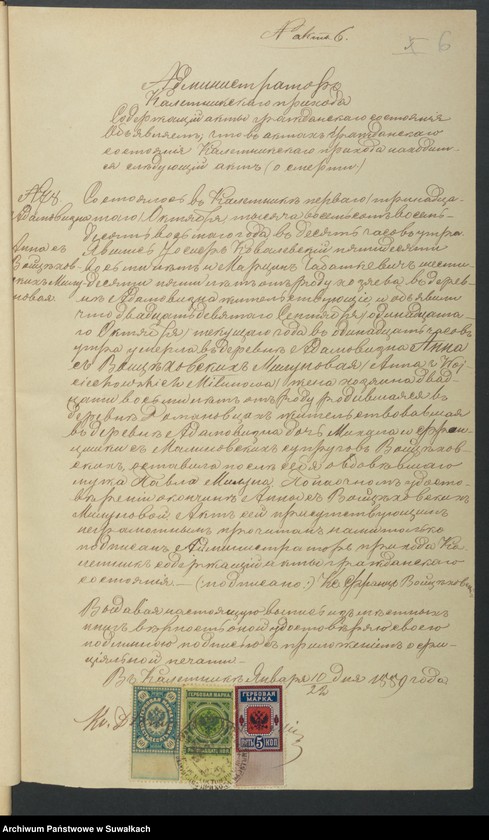 № акта 6.
X 6
Администраторъ
Калетникскаго прихода
Содержащій акты гражданскаго состоянія
Объявляетъ, что въ актахъ Гражданскаго
состоянія Калетникскаго прихода находит-
ся слѣдующій актъ (о смерти)
Состоялось въ Калетникѣ перваго (тринадца-
Адамовизна
таго) Октября тысяча восемьсотъ восемь-
десятъ восьмаго года въ десять часовъ утра.
Анна съ
Явились Ковалевскій пятидесяти
Войцѣхов-
восьми лѣтъ и Марцинъ шести
скихъ Милу-
десяти лѣтъ отъ роду хозяева въ дерев-
новая.
нѣ Адамовизна жительствующіе и объявили
что двадцать девятого Сентября (одинадцата-
го Октября) текущаго года въ одинадцать часовъ
утра умерла въ деревнѣ Адамовизна Анна
съ Войцѣховскихъ Милуновая (Anna z Woj-
ciechowskich Milunowa) жена хозяина двад-
цати восьми лѣтъ отъ роду родившаяся въ
деревнѣ жительствовавшая
въ деревнѣ Адамовизна дочь Михала и Фран-
цишки съ супруговъ Войцѣхов-
скихъ, оставила послѣ себя овдовѣвшаго
мужа Павла Милуна. По наочномъ удосто-
вѣреніи о кончинѣ Анны съ Войцѣховскихъ
Милуновой Актъ сей присутствующимъ
неграмотнымъ прочитанъ нами только
подписанъ Администраторъ прихода Ка-
летникъ содержащій акты гражданскаго
состоянія — (подписано:) Кс. Францъ Войцѣховск
Выдавая настоящую выпись изъ метричныхъ
книгъ вѣрность оной удостовѣряю своею
подлинною подписью съ приложеніемъ оффи-
ціальной печати.
Въ Калетникѣ Января 10/22 дня 1889 года
Кс.
ГЕРБОВАЯ МАРКА
ГЕРБОВАЯ МАРКА
ПЯТЬ 5 КОП
Archiwum Państwowe w Suwałkach